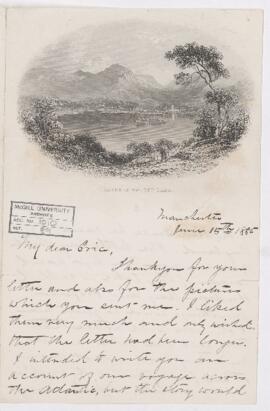 Manchester
June 15th 1885
McGILL UNIVERSITY
ARCHIVES
ACC. NO.
REF.
My dear Eric,
Thank you for your
letter and also for the pictures
which you sent me. I liked
them very much and only wished
that the letter had been longer.
I intended to write you an
account of our voyage across
the Atlantic, but the story would